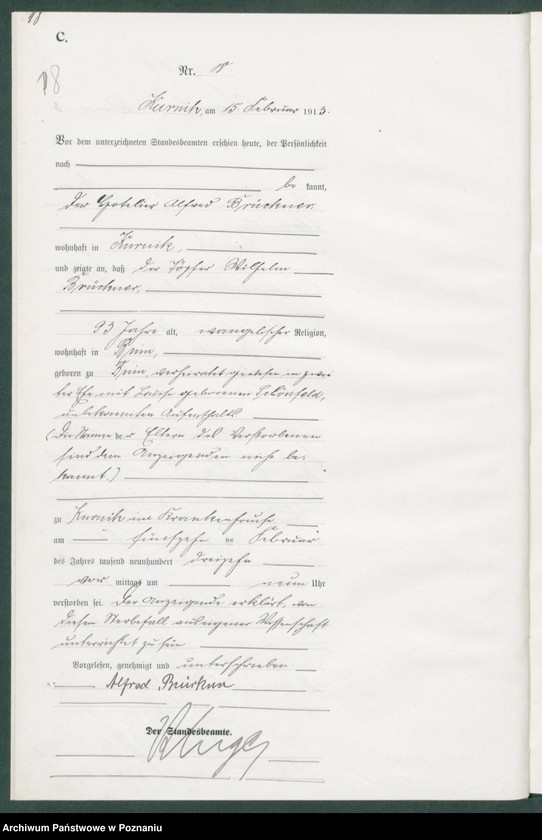 18
C.
18
Nr.
Kurnik, am 15 Februar 1913.
Vor dem unterzeichneten Standesbeamten erschien heute, der Persönlichkeit
nach
be kannt,
der Hotelier Alfred Brückner
wohnhaft in Kurnik,
und zeigte an, daß der Töpfer Wilhelm
Brückner,
93 Jahre alt, evangelischer Religion,
wohnhaft in Bnin,
geboren zu Bnin, verheiratet gewesen in zwei
ter Ehe mit geborenen Schönfeld,
unbekannten Aufenthalts
(Die Namen der Eltern des Verstorbenen
sind dem Anzeigenden nicht be
kannt.)
zu Kurnik im Krankenhause
am fünfzehn ten Februar
des Jahres tausend neunhundert dreizehn
vor mittags um neun Uhr
verstorben sei. Der Anzeigende erklärt, von
diesem Sterbefall aus eigener Wissenschaft
unterrichtet zu sein
Vorgelesen, genehmigt und unterschrieben
Alfred Brückner
Der Standesbeamte.
Archiwum Państwowe w Poznaniu